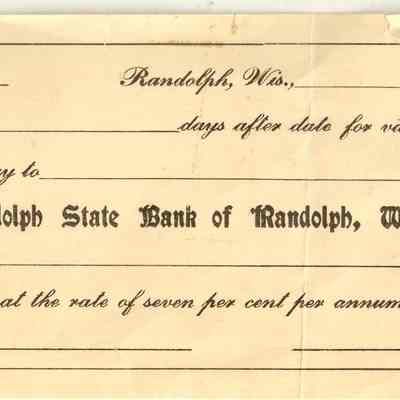 Randolph, Wis.,
days after date for va
y to
dolph State Bank of Randolph, W
at the rate of seven per cent per annum